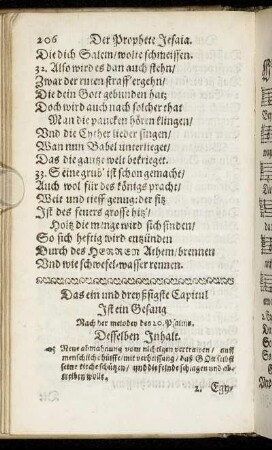 206 Der Prophete Jesaia.
Die dich Salem/ wolte schmeissen.
32. Also wird es dan auch stehn/
Zwar der ruten straff' ergehn/
Die dein Gott gebunden hat;
Doch wird auch nach solcher that
Man die paucken hören klingen/
Vnd die Cyther lieder singen/
Wan nun Babel unterlieget/
Das die gantze welt bekrieget.
33. Seine grub' ist schon gemacht/
Auch wol für des königs pracht/
Weit und tieff genung: der sitz
Ist des feuers grosse hitz/
Holtz die menge wird sich finden/
So sich heftig wird entzünden
Durch des HERREN Athem/ brennen
Vnd wie schwefel-wasser rennen.
Das ein und dreyßigste Capitul
Ist ein Gesang
Nach der melodey des 20. Psalms.
Desselben Inhalt.
Neue abmahnung vom nichtigen vertrawen/ auff
menschliche hülffe/ mit verheissung/ daß GOtt selbst
seine kirche schützen/ und die feinde schlagen und ab-
treiben wolle.
1. Egy-